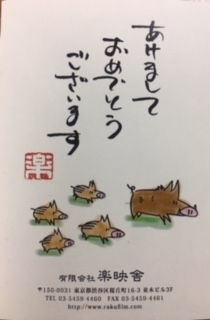 あけまして
おめでとう
ございます
楽
有限会社 楽映舎
〒150-0031 東京都渋谷区桜丘町16-3 並木ビル3F
TEL 03-5459-4460 FAX 03-5459-4461
http://www.rakufilm.com